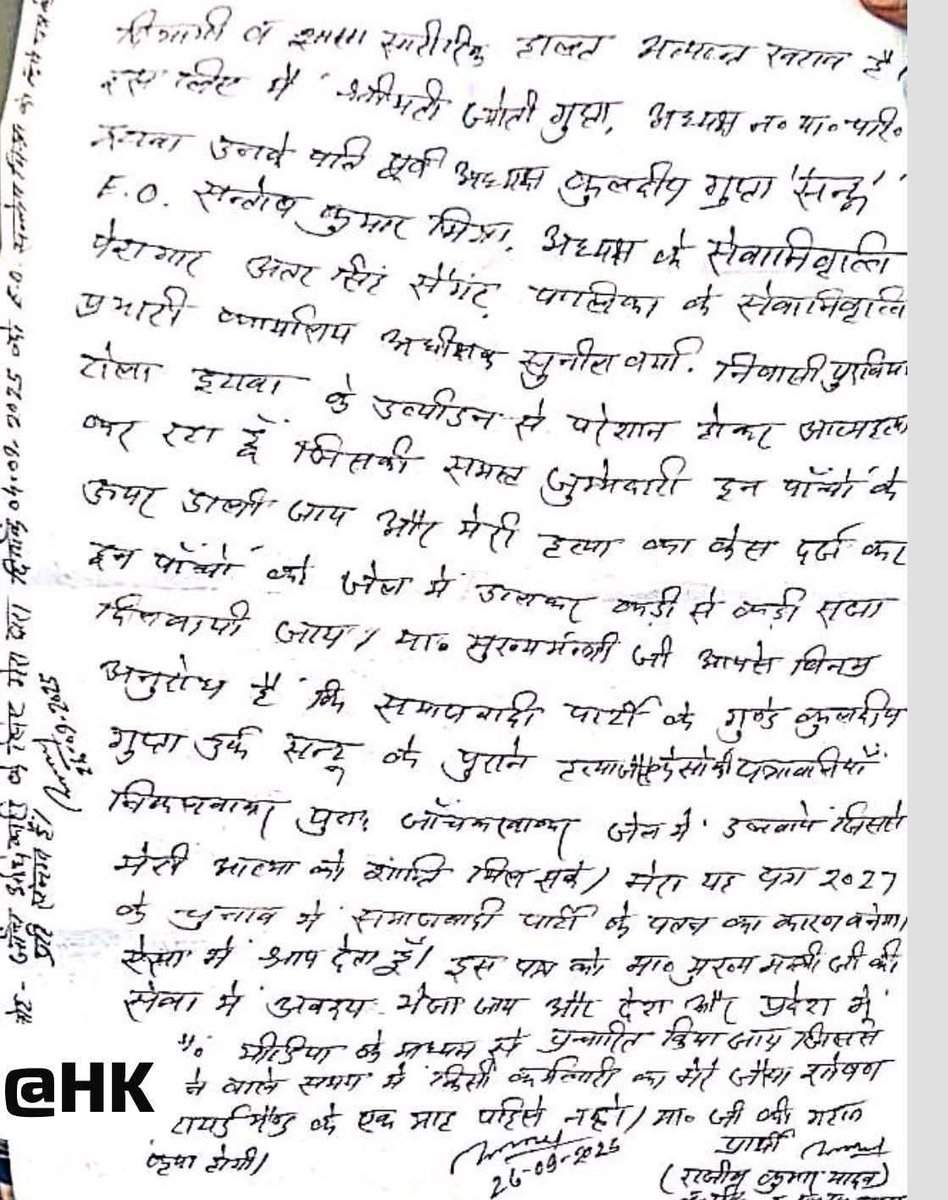 व शारीरिक हालत अत्यन्त खराब है।
इस लिए मैं श्रीमती ज्योती गुप्ता, अध्यक्ष न० पा० परि०
इटावा उनके पति पूर्व अध्यक्ष कुलदीप गुप्ता 'सन्टू'
E.O. सन्तोष कुमार मिश्रा, अध्यक्ष के सेवानिवृत्ति
पेशगार अतर सिंह सेंगर, पालिका के सेवानिवृत्ति
प्रभारी कार्यालय अधीक्षक सुनील वर्मा. निवासी पुरबिया
टोला इटावा के उत्पीडन से परेशान होकर आत्महत्या
कर रहा हूँ जिसकी समस्त जुम्मेदारी इन पाँचों के
ऊपर डाली जाय और मेरी हत्या का केस दर्ज कर
इन पाँचों को जेल में डालकर कड़ी से कड़ी सजा
दिलवायी जाय। मा० मुख्यमंत्री जी आपसे विनम्र
अनुरोध है कि समाजवादी पार्टी के गुण्डे कुलदीप
गुप्ता उर्फ सन्टू के पुराने पत्रावलियाँ
निकलवाकर पुनः जाँच करवाकर जेल में डलवायें जिससे
मेरी आत्मा को शांति मिल सके। मेरा यह पत्र 2027
के चुनाव में समाजवादी पार्टी के पतन का कारण बनेगा।
ऐसा मैं श्राप देता हूँ। इस पत्र को मा० मुख्य मंत्री जी की
सेवा में अवश्य भेजा जाय और देश और प्रदेश में
मीडिया के माध्यम से प्रसारित किया जाय जिससे
ने वाले समय में किसी कर्मचारी का मेरे जैसा शोषण
के एक माह पहिले न हो। मा० जी की महान
कृपा होगी।
26-09-2025
प्रार्थी
(राजीव कुमार यादव)
26.9.2025
@HK